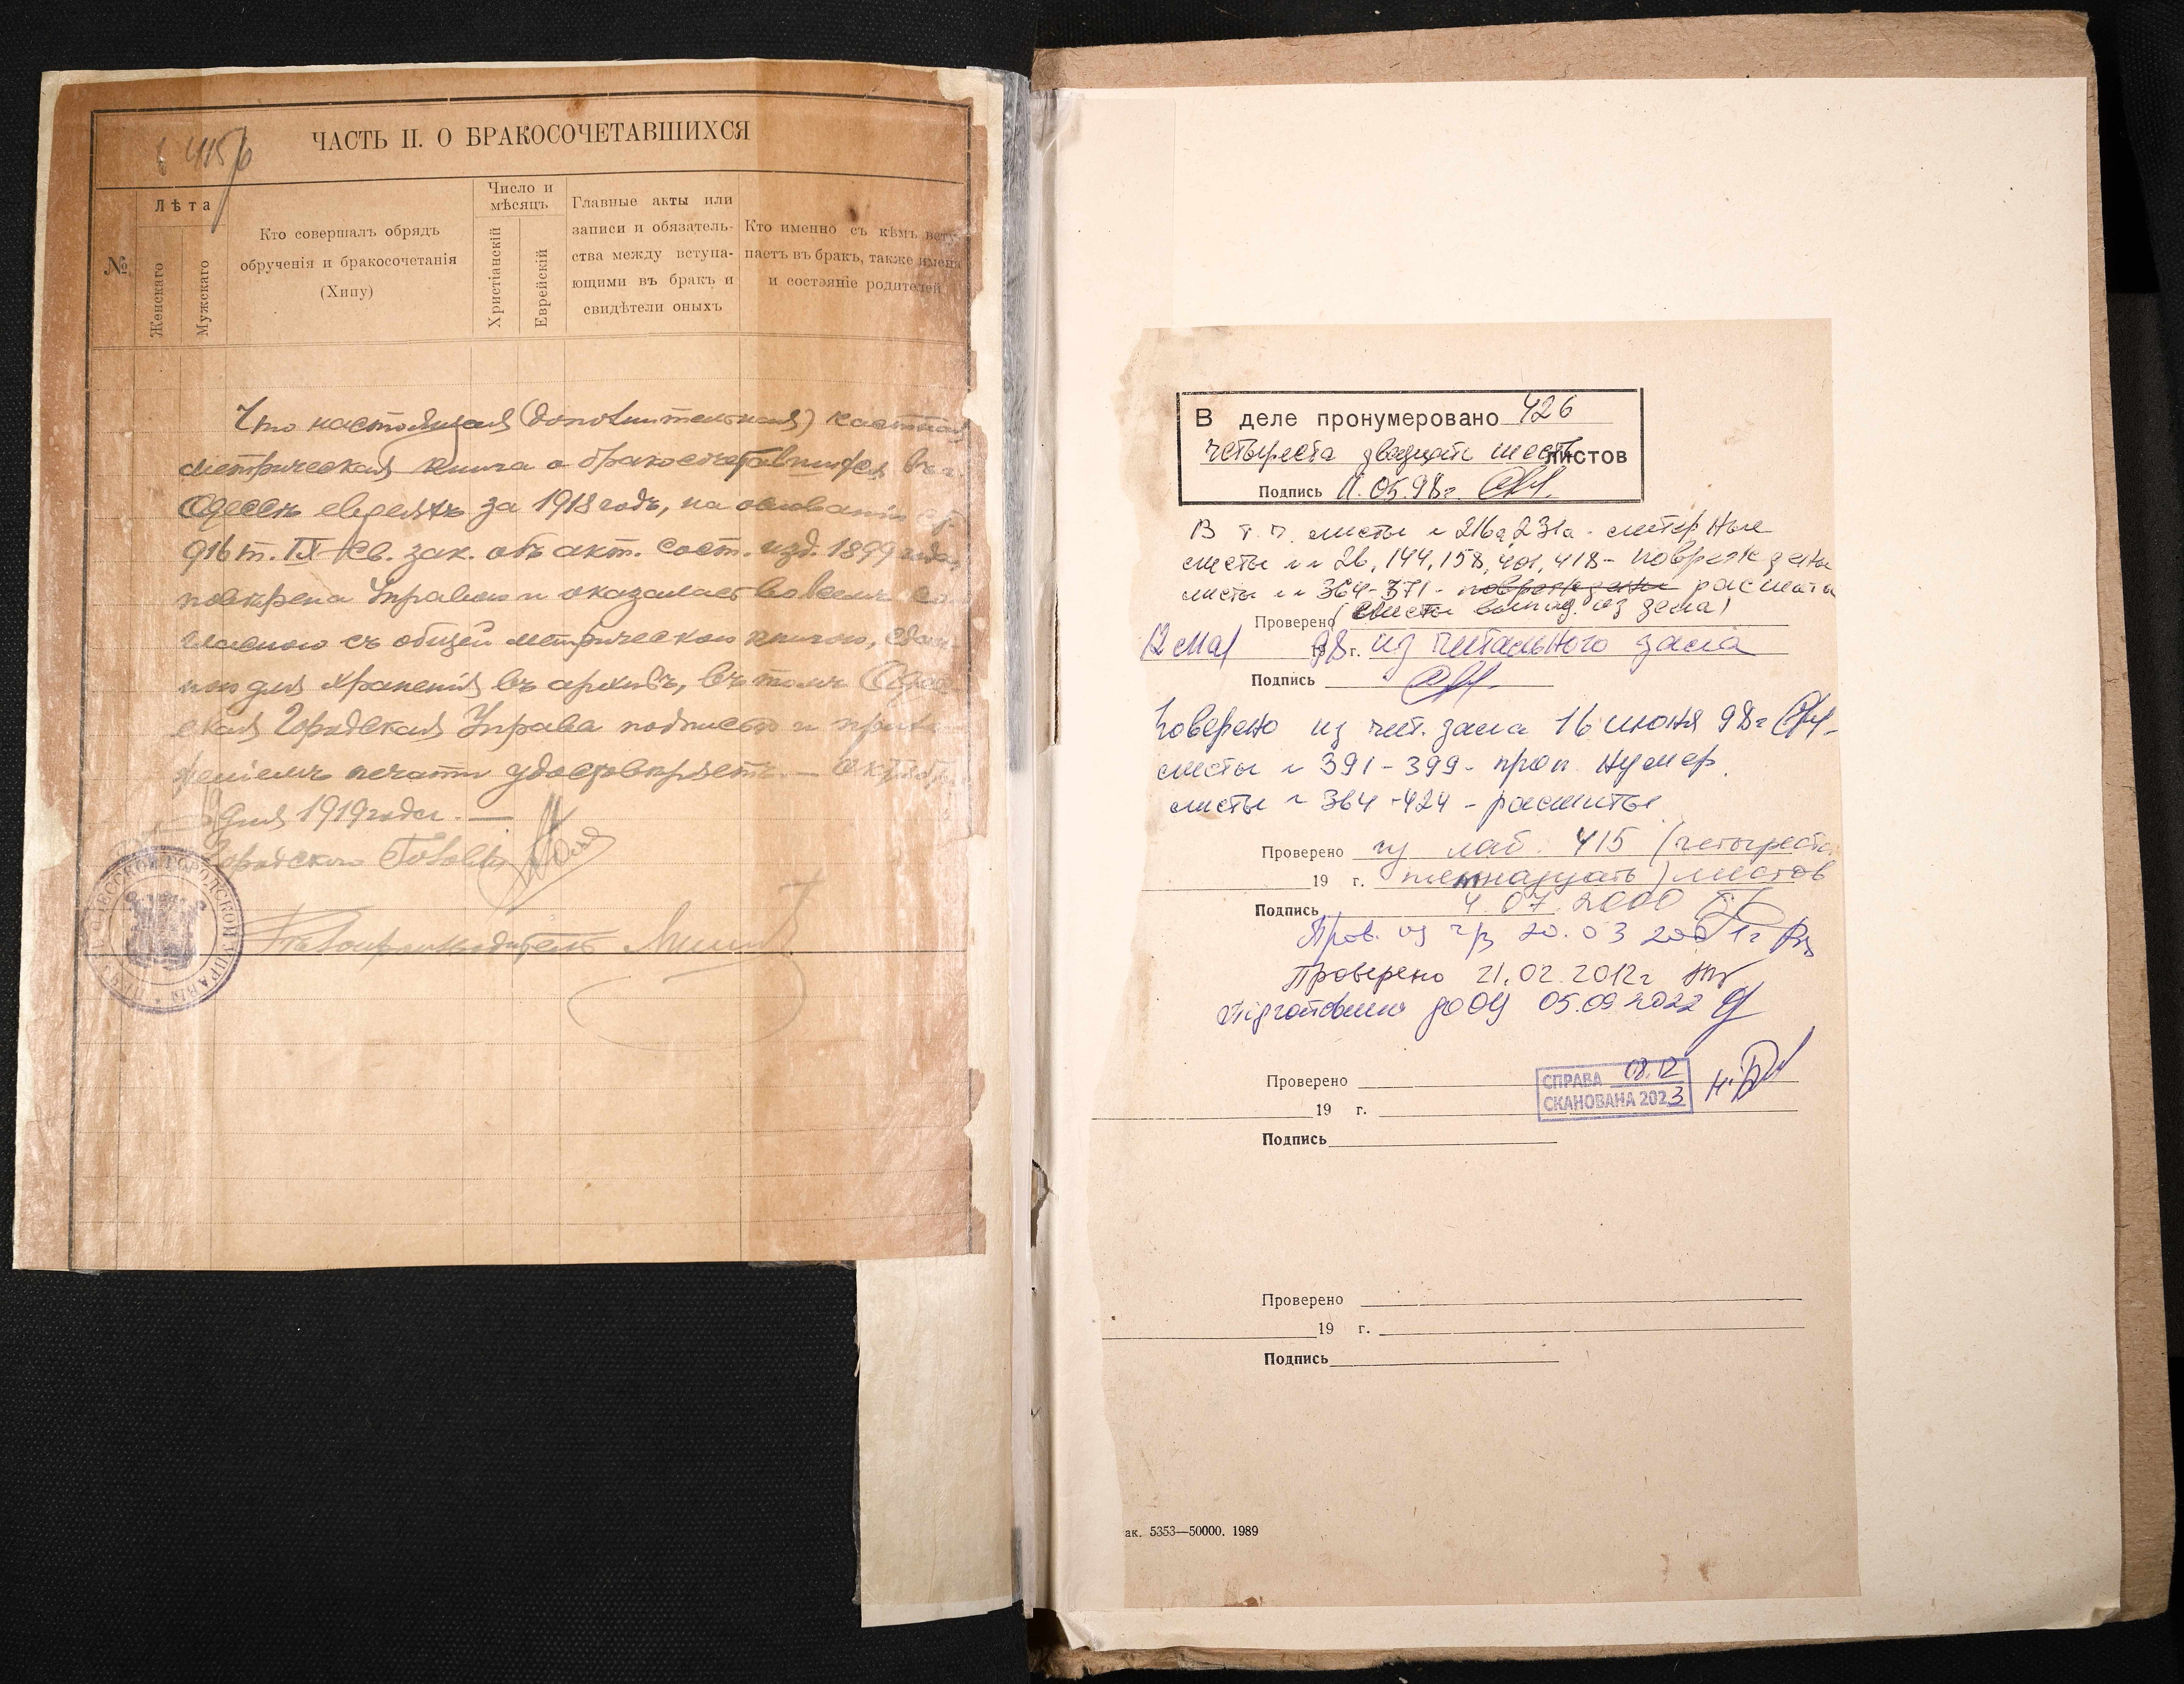 415
ЧАСТЬ II. О БРАКОСОЧЕТАВШИХСЯ
№
Лѣта
Женскаго
Мужскаго
Кто совершалъ обрядъ
обрученія и бракосочетанія
(Хипу)
Число и
мѣсяцъ
Христіанскій
Еврейскій
Главные акты или
записи и обязатель-
ства между вступа-
ющими въ бракъ и
свидѣтели оныхъ
Кто именно съ кѣмъ всту-
паетъ въ бракъ, также имена
и состояніе родителей
Что настоящая (дополнительная) частная
метрическая книга о бракосочетавшихся въ г.
Одессѣ евреяхъ за 1918 годъ, на основаніи ст.
916 т. IX Св. зак. объ акт. сост. изд. 1899 года,
повѣрена Управою и оказалась во всемъ со-
гласною съ общей метрическою книгою, сдан-
ною для храненія въ архивъ, въ томъ Одес-
ская Городская Управа подписью и прило-
женіемъ печати удостовѣряетъ. — Октября
дня 1919 года. —
Городского Головы
ОДЕССКОЙ ГОРОДСКОЙ УПРАВЫ
Дѣлопроизводитель
В деле пронумеровано 426
четыреста двадцать шесть листов
Подпись 11.05.98г.
В т. ч. листы № 216а, 231а - литерные
листы №№ 26, 144, 158, 401, 418 - повреждены
листы №№ 364-371 - повреждены расшиты
(листы выпад. из дела)
Проверено
12 мая 1998 г. из читального зала
Подпись
Проверено из чит. зала 16 июня 98г
листы № 391-399 - проп. нумер.
листы № 364-424 - расшиты
Проверено из лаб. 415 (четыреста
19 г. пятнадцать) листов
Подпись 4.07.2000
Пров. из ч/з 20.03 2001г
Проверено 21.02.2012г
Підготовлено до ОЦ 05.09.2022
Проверено
СПРАВА 08.12
СКАНОВАНА 2023
19 г.
Подпись
Проверено
19 г.
Подпись
ак. 5353—50000. 1989